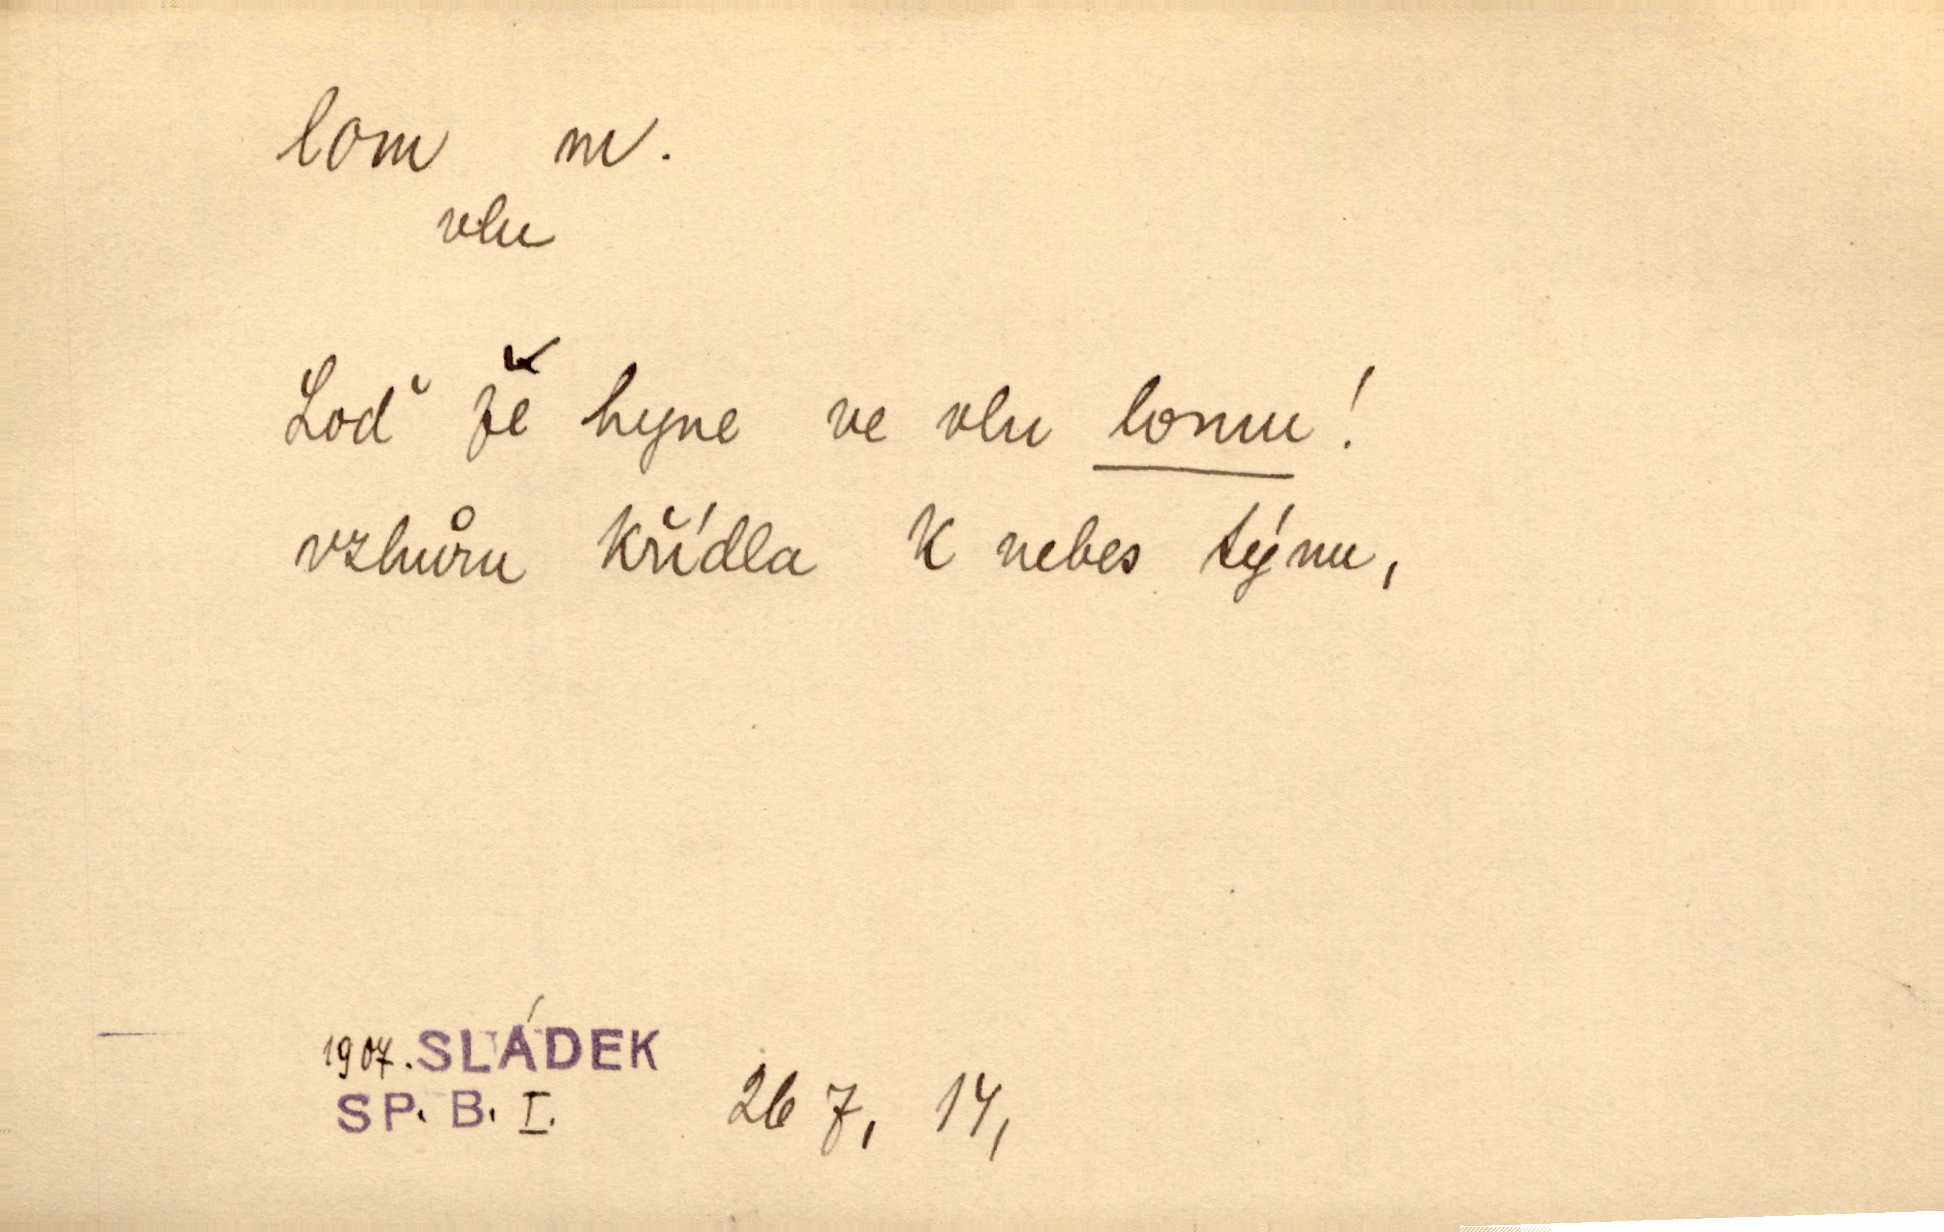 lom m.
vlu
Loď že hyne ve vlu lomu!
vzhůru křídla k nebes týnu,
1907. SLÁDEK
SP. B. I. 267, 14,